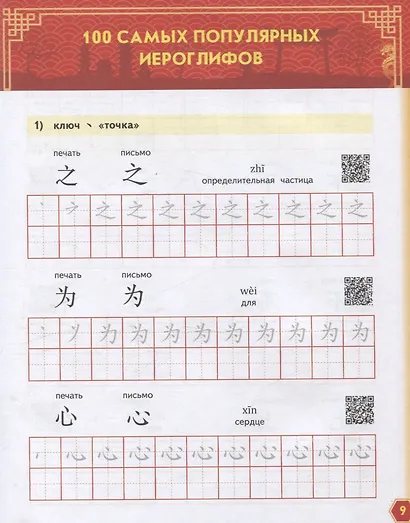 100 САМЫХ ПОПУЛЯРНЫХ
ИЕРОГЛИФОВ
1) ключ 丶 «точка»
печать письмо
之 之 zhī
определительная частица
之 之 之 之 之 之 之 之
печать письмо
为 为 wèi
для
为 为 为 为 为 为 为 为
печать письмо
心 心 xīn
сердце
心 心 心 心 心 心 心
9